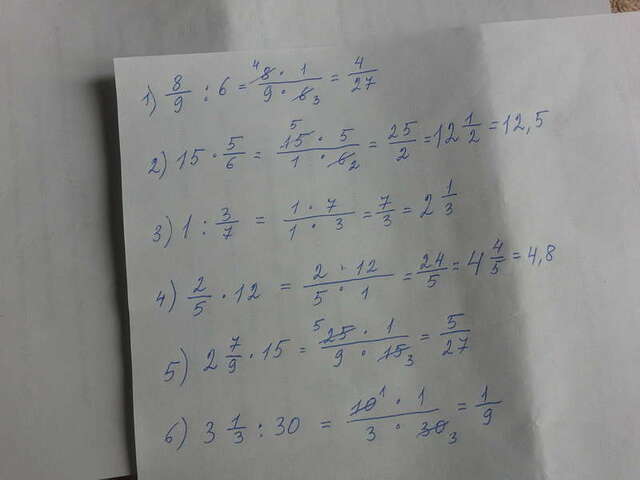 1) 8/9 : 6 = 8⁴ · 1 / 9 · 6₃ = 4/27
2) 15 · 5/6 = 15⁵ · 5 / 1 · 6₂ = 25/2 = 12 1/2 = 12,5
3) 1 : 3/7 = 1 · 7 / 1 · 3 = 7/3 = 2 1/3
4) 2/5 · 12 = 2 · 12 / 5 · 1 = 24/5 = 4 4/5 = 4,8
5) 2 7/9 · 15 = 25⁵ · 1 / 9 · 15₃ = 5/27
6) 3 1/3 : 30 = 10¹ · 1 / 3 · 30₃ = 1/9